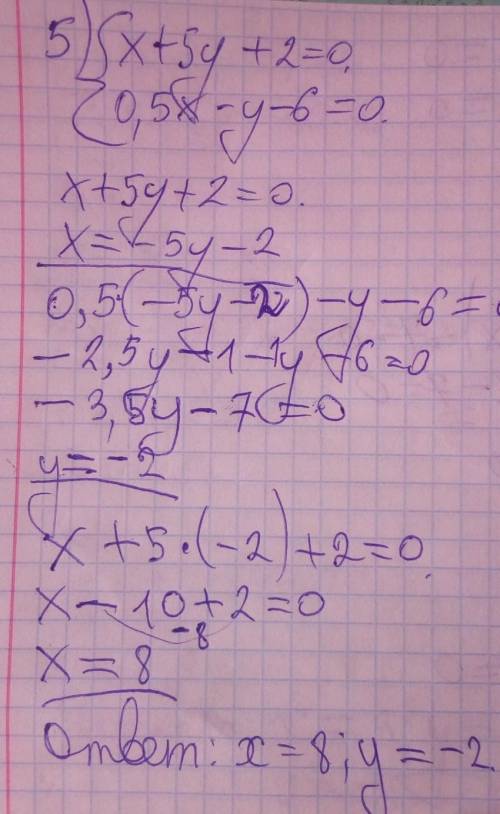 5) { x+5y+2=0.
0,5x-y-6=0.
x+5y+2=0.
x=-5y-2
0,5·(-5y-2)-y-6=0
-2,5y-1-1y-6=0
-3,5y-7=0
y=-2
x+5·(-2)+2=0.
x-10+2=0
-8
x=8
Ответ: x=8; y=-2.